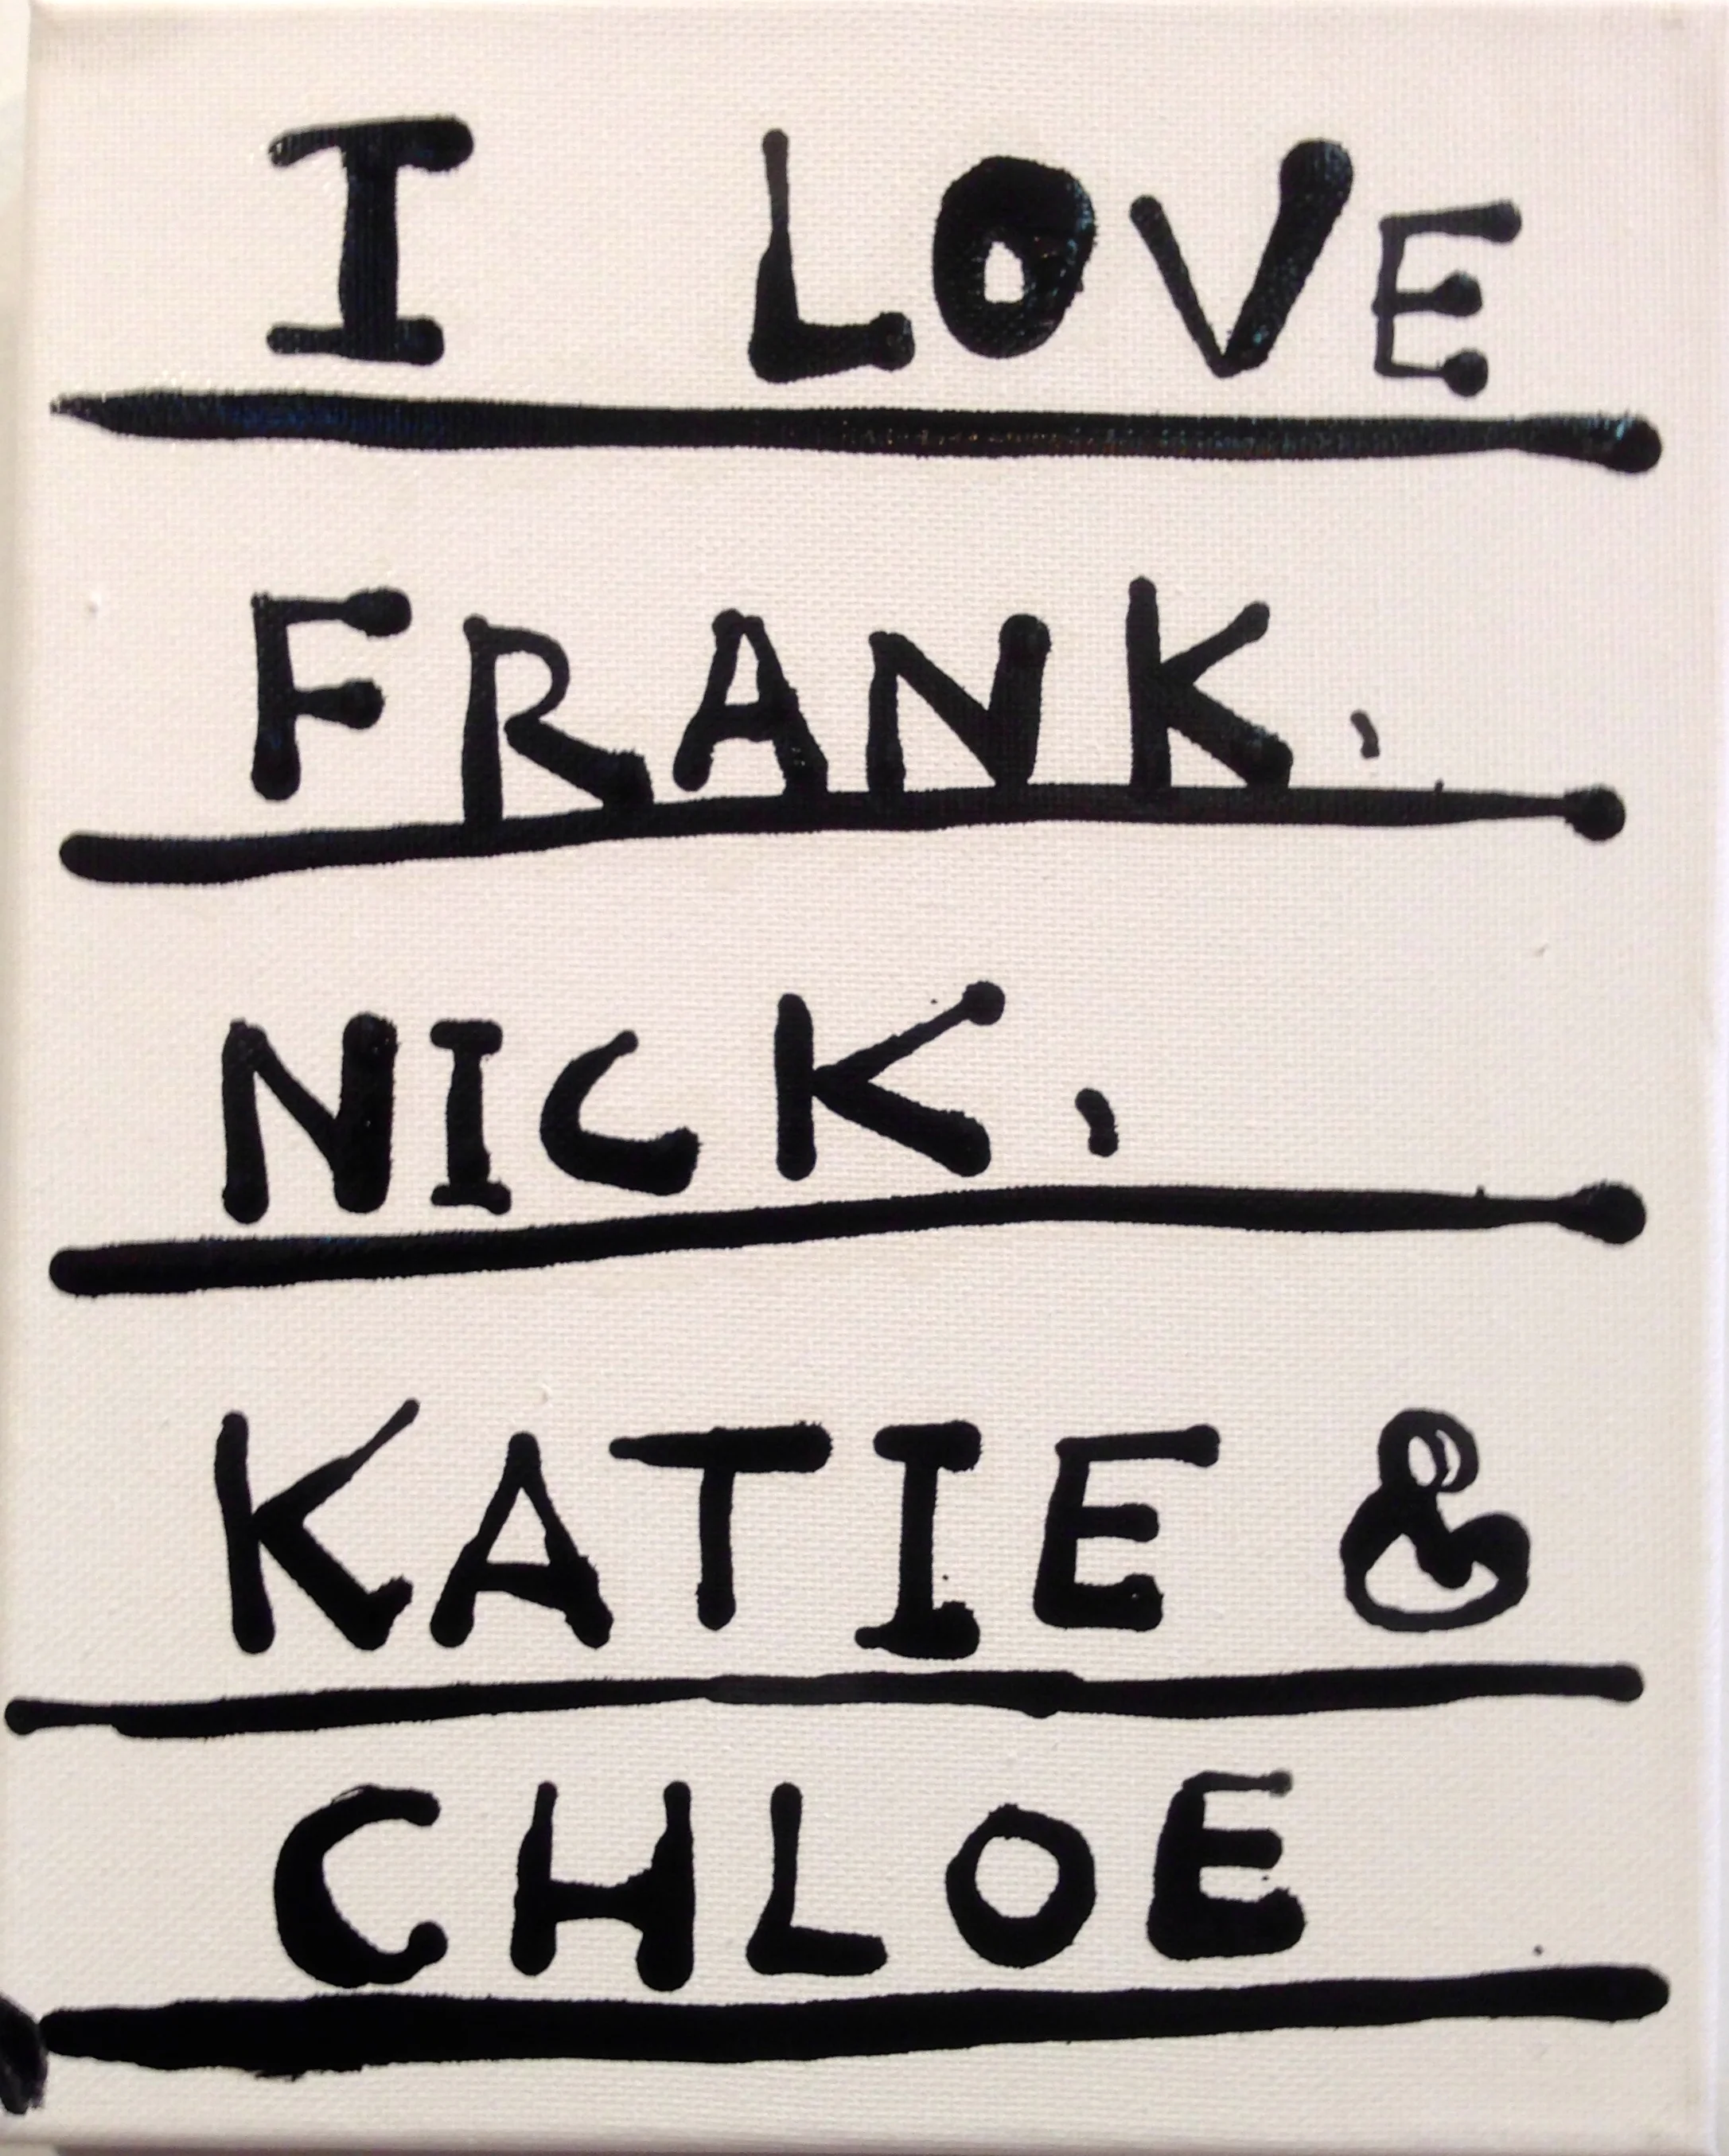 I LOVE
FRANK,
NICK,
KATIE &
CHLOE